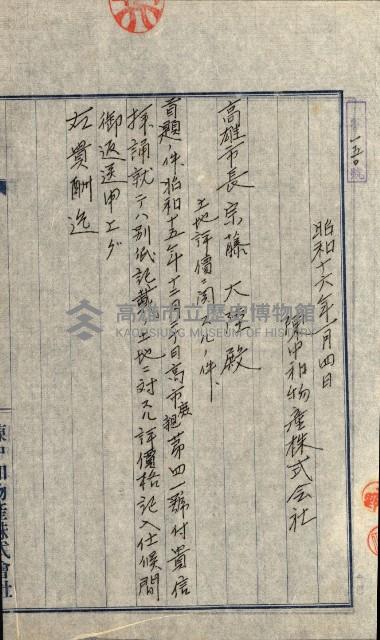 一五〇
號
昭和十六年一月四日
陳中和物產株式会社
高雄市長 宗藤 大陸 殿
土地評價ニ関スル件
首題ノ件昭和十五年十二月 日高市 第四一號付貴信
拝誦就テハ別紙記載ノ土地ニ対スル評價格記入仕候間
御返送申上グ
右貴酬迄
陳中和物產株式會社
高雄市立歷史博物館
KAOHSIUNG MUSEUM OF HISTORY